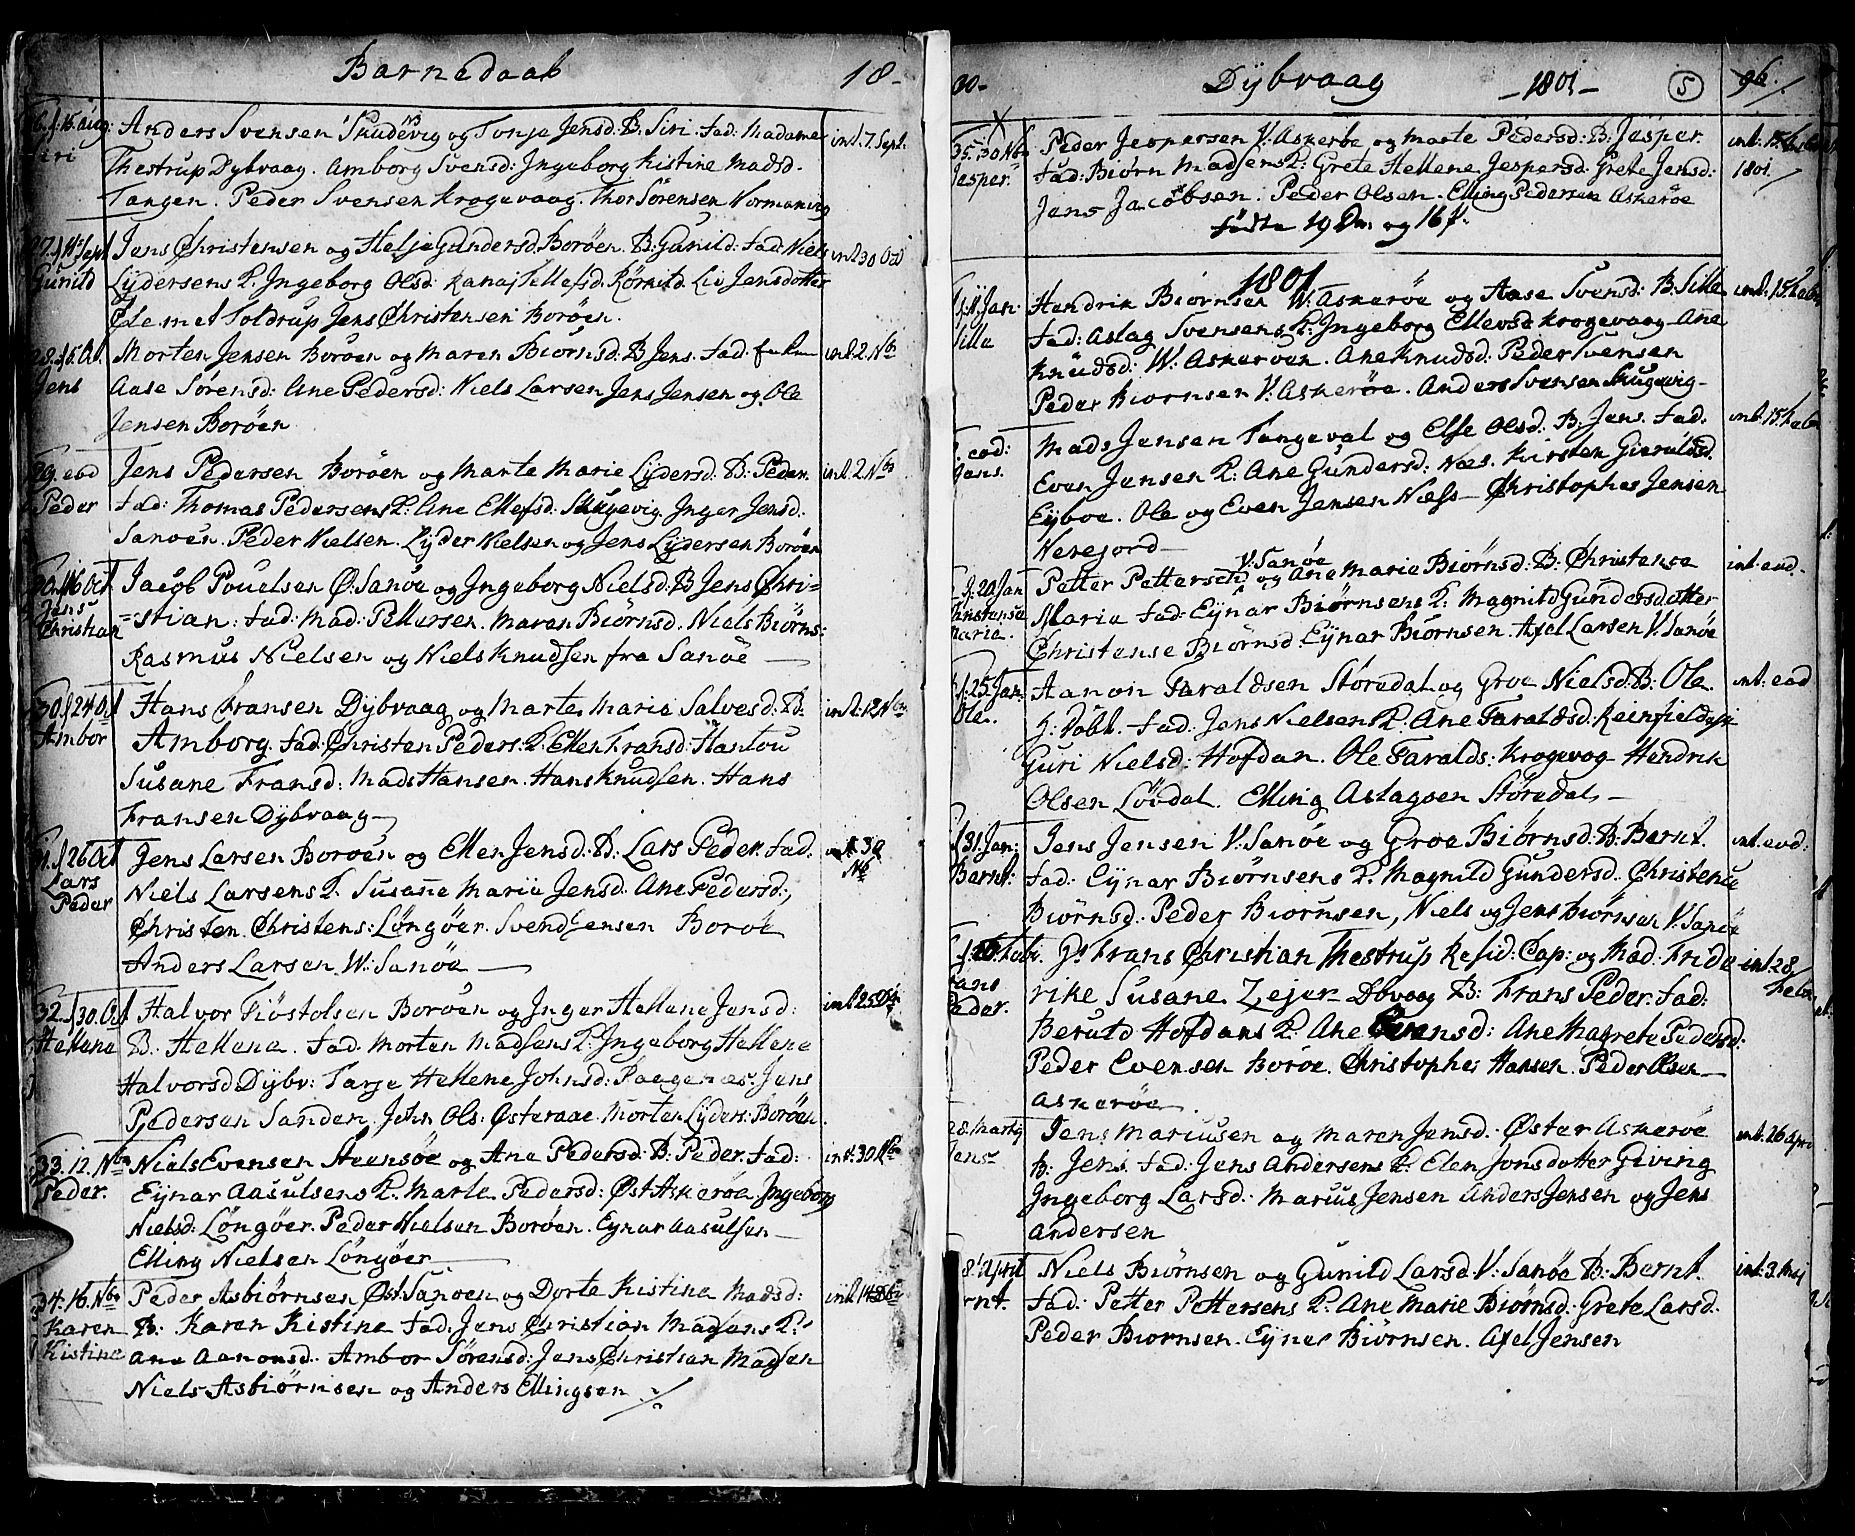 Barnedaab 18-
26. f. 16. aug: Anders Svensen Skudevig og Tonje Jensd: B: Siri. fad: Madame int. 7. Sept.
Siri Thestrup Dybvaag. Amborg Svensd: Ingeborg Kistine Madsd.
Tangen. Peder Svensen Krogevaag. Thor Sörensen
27. f. 14 Sept Jens Christensen og Helje Gundersd. Boröen. B: Gunild: fad: Niels int 30 Oct
Gunild Lydersens K. Ingeborg Olsd. Tellefsd. Liv Jensdotter
Toldrup Jens Christensen Boröen.
28. f. 5. Oct. Morten Jensen Boröen og Maren Biörnsd: B Jens. fad: int. 2. Nbr
Jens Aase Sörensd: Ane Pedersd: Niels Larsen Jens Jensen og Ole
Jensen Boröen
29. eod Jens Pedersen Boröen og Marte Marie Lydersd. B: Peder. int. 2. Nbr
Peder fad: Thomas Pedersens K: Ane Ellefsd. Skugevig. Inger Jensd.
Sanöen. Peder Nielsen. Lyder Nielsen og Jens Lydersen Boröen
30. f. 16 Oct Jacob Pouelsen Ö. Sanöe og Ingeborg Nielsd: B Jens Chri-
Jens =stian: fad: Mad: Pettersen. Maren Biörnsd. Niels Biörns:
Christian Rasmus Nielsen og Niels Knudsen fra Sanöe —
30. f. 24 Oct Hans Fransen Dybvaag og Marte Maria Salvesd: B: int. 12 Nbr
Ambor Amborg. fad: Christen Peders: K. Ellen Fransd: Hantou
Susane Fransd: Mads Hansen. Hans Knudsen. Hans
Fransen Dybvaag —
31. f. 26 Oct Jens Larsen Boröen og Ellen Jensd: B: Lars Peder. fad. int. 30
Lars Niels Larsens K. Susane Marie Jensd. Ane Pedersd:, Nbr
Peder Christen Christens: Löngöer. Svend Jensen Boröe
Anders Larsen W: Sanöe —
32. f. 30. Oct Halvor Tiöstolsen Boröen og Inger Hellene Jensd:
Hellene B. Hellene. fad. Morten Madsens K. Ingeborg Hellene
Halvorsd Dybv: Tarje Hellene Johnsd: Jens
Pedersen Sanden, John Ols: Österaae. Morten Lyders: Boröen.
33. 12. Nbr Niels Evensen Steensöe og Ane Pedersd: B: Peder. fad: int: 30 Nbr
Peder. Eynar Aasulsens K. Marte Pedersd: Öst Askeröe Ingeborg
Nielsd: Löngöer. Peder Nielsen Boröen. Eynar Aasulsen —
Elling Nielsen Löngöer —
34. 16. Nbr Peder Asbiörnsen Öst. Sanöen og Dorte Kistine Madsd:
Karen B: Karen Kistine fad. Jens Christian Madsens K:
Kistine Ane Aanonsd. Ambor Sörensd: Jens Christian Madsen
Niels Asbiörnsen og Anders Ellingsen
00- Dÿbvaag -1801- 5 96.
35. 30 Nbr Peder Jespersen V: Askeröe og Marte Pedersd: B: Jesper. int. 15. Febr
Jesper. fad: Biörn Madsens K: Grete Hellene Jespersd: Grete Jensd: 1801
Jens Jacobsen. Peder Olsen. Elling Pedersen Askeröe
födte 19 Dr. og 16 P.
1801
Jan. Hendrik Biörnsen W. Askeröe og Aase Svensd: B: Sille int: 15. Febr
Sille fad: Aslag Svensens K. Ingeborg Ellevsd. Krogevaag. Ane
Knudsd: W: Askeröen. Ane Knudsd: Peder Svensen
Peder Biörnsen V: Askeröe. Anders Svensen Skugevig -
eod: Mads Jensen Tangeval og Else Olsd. B: Jens. fad. int. 15. Febr
Jens. Even Jensens K: Ane Gundersd: Næs. Kirsten Gieruldsd.
Eyboe. Ole og Even Jensen Næss — Christopher Jensen
Nevejord —
V. Sanöe
f. 20 Jan Petter Pettersen og Ane Marie Biörnsd: B: Christense int: eod.
Christense Maria fad: Eynar Biörnsens K: Magnild Gundersdotter
Maria. Christense Biörnsd: Eynar Biörnsen. Axel Larsen V: Sanöe
f: 25 Jan: Aanon Taraldsen Störedal og Groe Nielsd: B: Ole. int: eod
Ole. H: Döbt. fad. Jens Nielsens K. Ane Taraldsd:
Guri Nielsd: Hofdan. Ole Taralds: Krogevog Hendrik
Olsen Lövdal. Elling Aslagsen Störedal —
f. 31. Jan: Jens Jensen V. Sanöe og Groe Biörnsd: B: Bernt. int. eod:
Bernt: fad: Eynar Biörnsens K. Magnild Gundersd. Christense
Biörnsd. Peder Biörnsen, Niels og Jens Biörnsen V. Sanöe
Febr. Hr Frans Christian Thestrup Resid: Cap: og Mad. Fride int. 28
Frans rike Susane Zejer Dbvaag B: Frans Peder. fad: Febr
Peder. Hofdans K: Ane Evensd: Ane Magrete Pedersd:
Peder Evensen Boröe. Christopher Hansen. Peder Olsen —
Askeröe.
28. Marty Jens Mariusen og Maren Jensd. Öster Askeröe int. 26 Apri
Jens B: Jens. fad: Jens Andersens K: Elen Jonsdotter Giving
Ingeborg Larsd: Marius Jensen Anders Jensen og Jens
Andersen
8. April Niels Biörnsen og Gunild Larsd. V: Sanöe B: Bernt. int. 3. Maj
Bernt. fad: Petter Pettersens K: Ane Marie Biörnsd: Grete Larsd.
Peder Biörnsen. Eynar Biörnsen. Axel Jensen